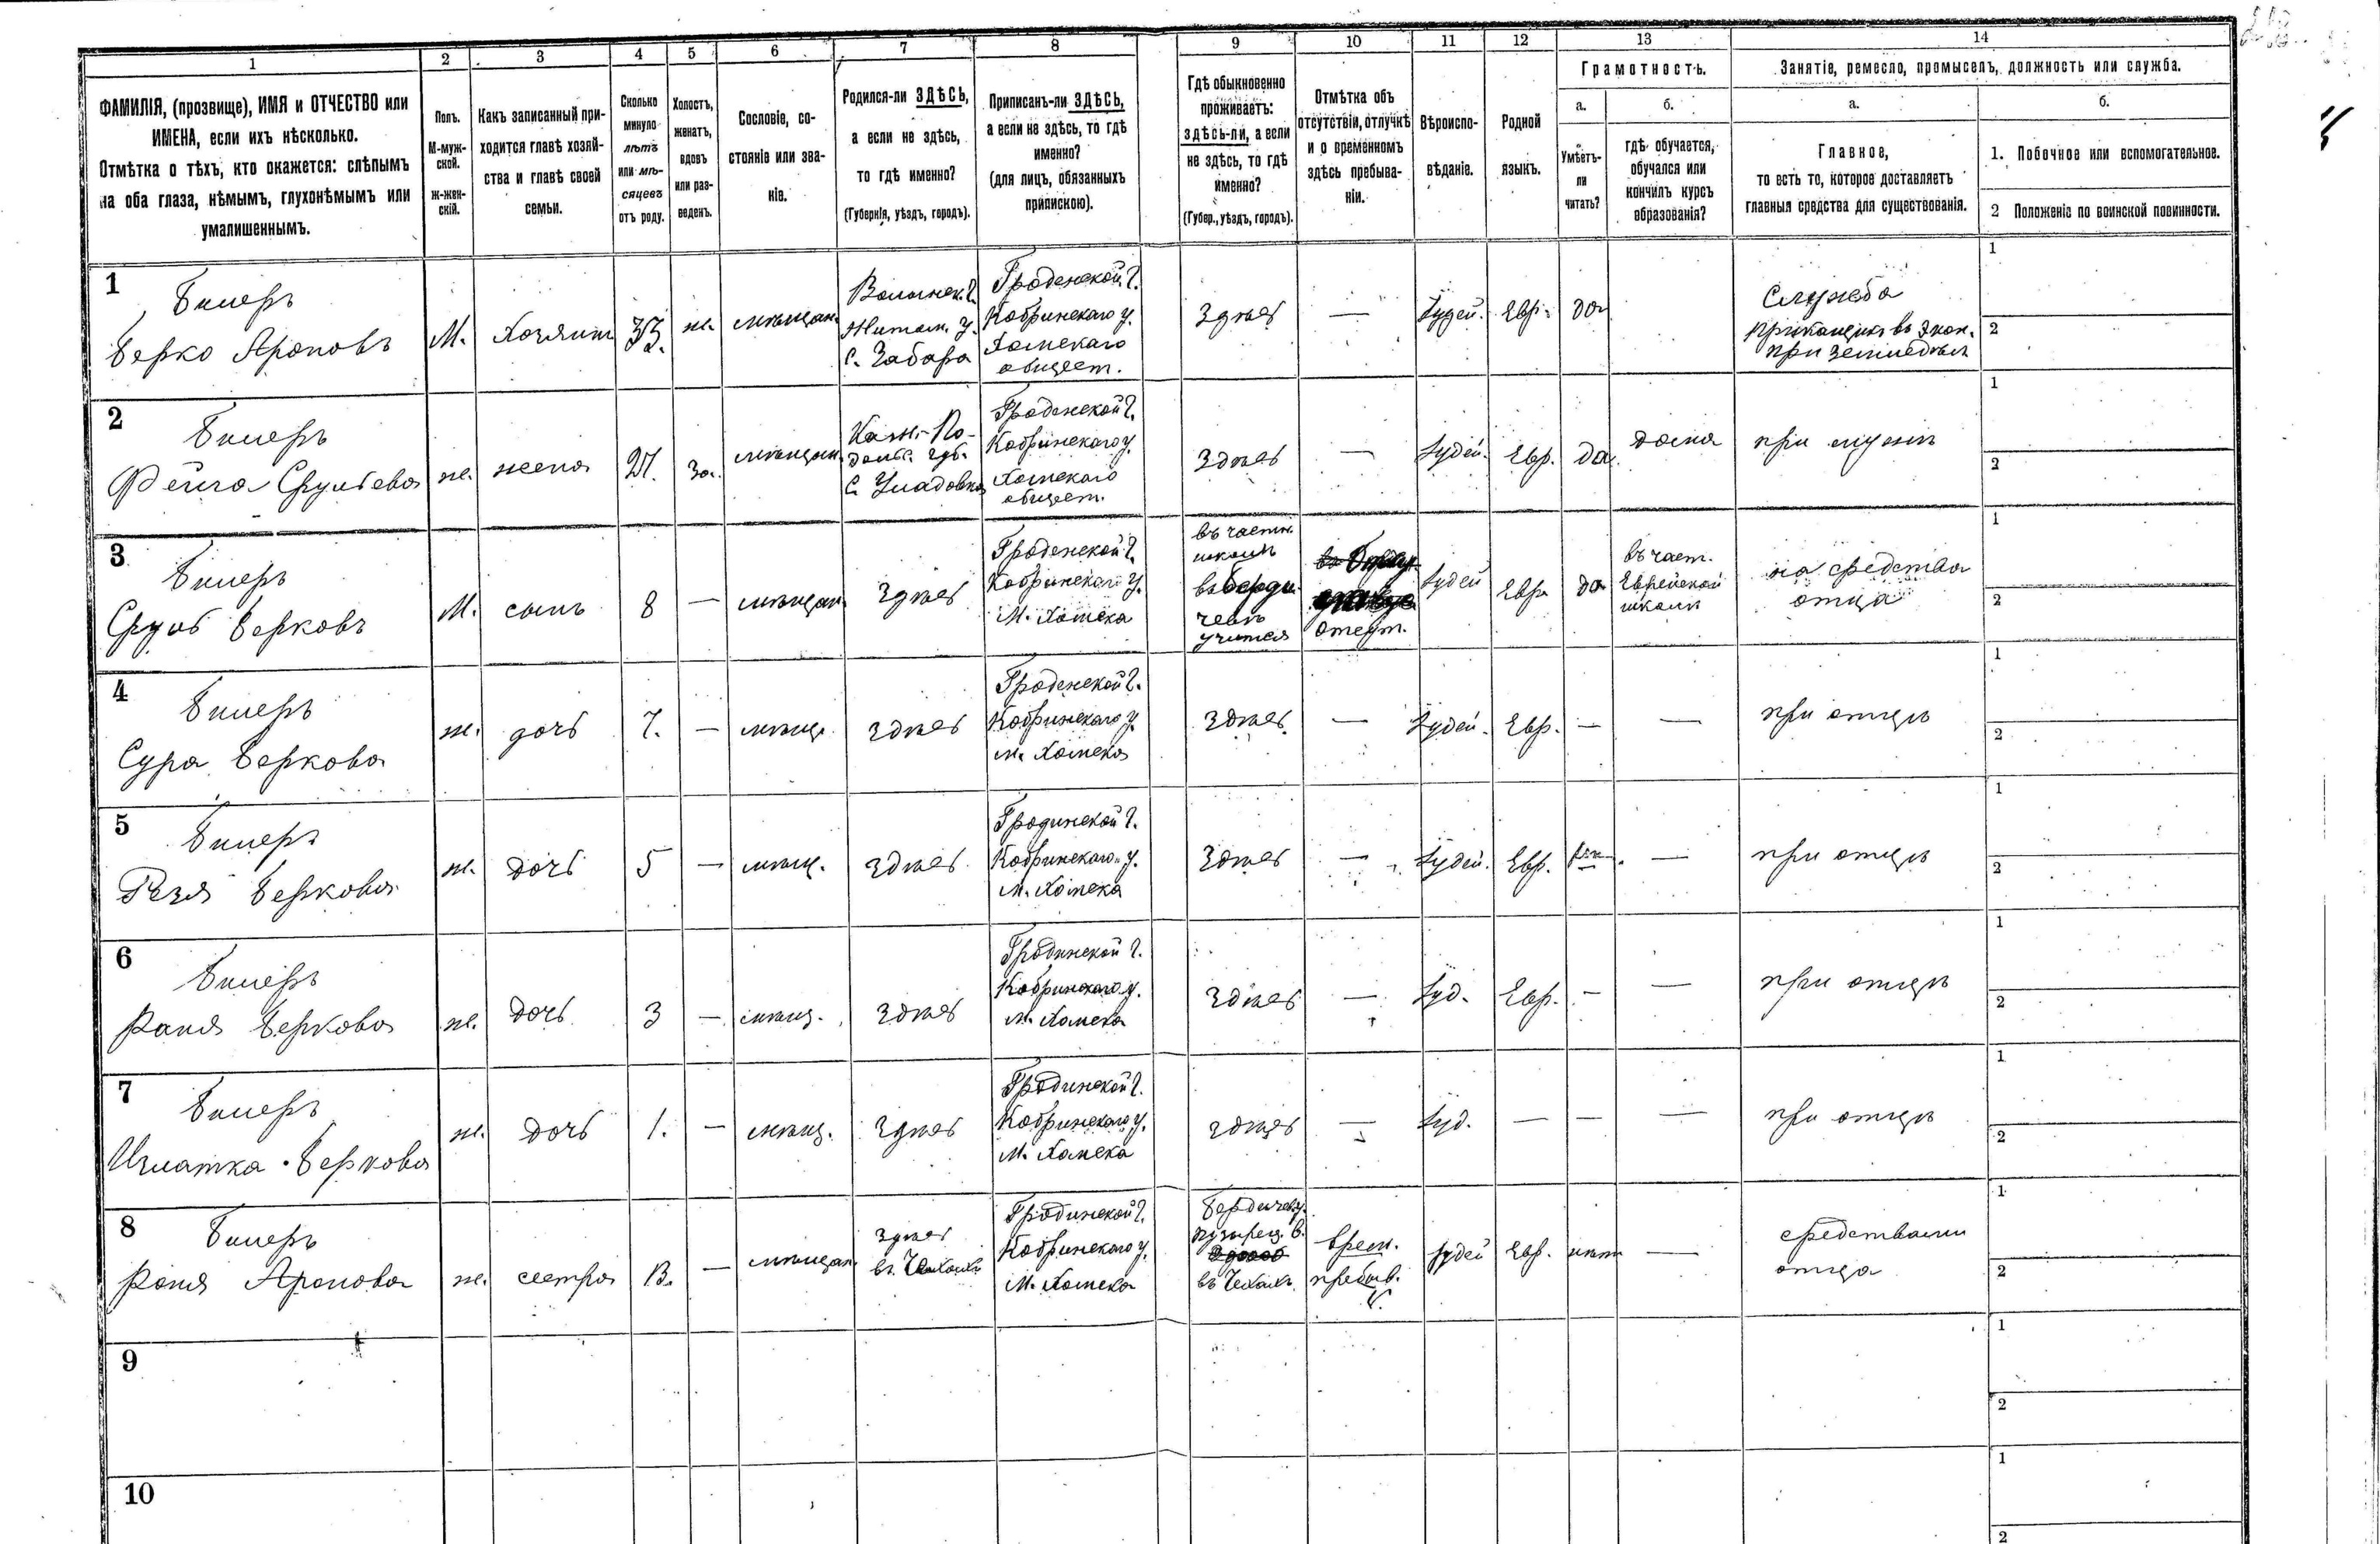 1
2
3
4
5
6
7
8
9
10
11
12
13
14
ФАМИЛІЯ, (прозвище), ИМЯ и ОТЧЕСТВО или
ИМЕНА, если ихъ нѣсколько.
Отмѣтка о тѣхъ, кто окажется: слѣпымъ
на оба глаза, нѣмымъ, глухонѣмымъ или
умалишеннымъ.
Полъ.
М-муж-
ской.
ж-жен-
скій.
Какъ записанный при-
ходится главѣ хозяй-
ства и главѣ своей
семьи.
Сколько
минуло
лѣтъ
или мѣ-
сяцевъ
отъ роду.
Холостъ,
женатъ,
вдовъ
или раз-
веденъ.
Сословіе, со-
стояніе или зва-
ніе.
Родился-ли ЗДѢСЬ,
а если не здѣсь,
то гдѣ именно?
(Губернія, уѣздъ, городъ).
Приписанъ-ли ЗДѢСЬ,
а если не здѣсь, то гдѣ
именно?
(для лицъ, обязанныхъ
припискою).
Гдѣ обыкновенно
проживаетъ:
здѣсь-ли, а если
не здѣсь, то гдѣ
именно?
(Губер., уѣздъ, городъ).
Отмѣтка объ
отсутствіи, отлучкѣ
и о временномъ
здѣсь пребыва-
ніи.
Вѣроиспо-
вѣданіе.
Родной
языкъ.
Грамотность.
а.
Умѣетъ-
ли
читать?
б.
гдѣ обучается,
обучался или
кончилъ курсъ
образованія?
Занятіе, ремесло, промыселъ, должность или служба.
а.
Главное,
то есть то, которое доставляетъ
главныя средства для существованія.
б.
1. Побочное или вспомогательное.
2 Положеніе по воинской повинности.
1
Берко Ароновъ
М.
Хозяинъ
33.
ж.
мѣщан.
Волынск. г.
Житом. у.
с. Забара
Гроденской г.
Кобринскаго у.
Хомскаго
общест.
Здѣсь
—
Іудей.
Евр.
да
Служба
прикащикъ въ Экон.
при земледѣл
1
2
2
ж.
жена
27.
за.
мѣщан.
Гроденской г.
Кобринскаго у.
Хомскаго
общест.
Здѣсь
—
Іудей.
Евр.
да.
дома
при мужѣ
1
2
3
Сруль Берковъ
М.
сынъ
8
—
мѣщан.
Здѣсь
Гроденской г.
Кобринскаго у.
М. Хомска
въ частн.
школѣ
въ Берди-
чевѣ
учится
отсут.
Іудей
Евр.
да
въ част.
Еврейской
школѣ
на средства
отца
1
2
4
Сура Беркова
ж.
дочь
7.
—
мѣщ.
здѣсь
Гроденской г.
Кобринскаго у.
м. Хомска
здѣсь.
—
Іудей.
Евр.
—
—
при отцѣ
1
2
5
Рейзя Беркова
ж.
дочь
5
—
мѣщ.
здѣсь
Гродинской г.
Кобринскаго у.
М. Хомска
Здѣсь
—
Іудей.
Евр.
—
при отцѣ
1
2
6
Раня Беркова
ж.
дочь
3
—
мѣщ.
здѣсь
Гродинской г.
Кобринскаго у.
М. Хомска
Здѣсь
—
Іуд.
Евр.
—
—
при отцѣ
1
2
7
Беркова
ж.
дочь
1.
—
мѣщ.
Здѣсь
Гродинской г.
Кобринскаго у.
М. Хомска
здѣсь
—
Іуд.
—
—
—
при отцѣ
1
2
8
Ароновa
ж.
сестра
13.
—
мѣщан.
здѣсь
Гродинской г.
Кобринскаго у.
М. Хомска
Бердичев у.
въ Чехахъ.
врем.
пребыв.
Іудей
Евр.
нѣтъ
—
средствами
отца
1
2
9
1
2
10
1
2